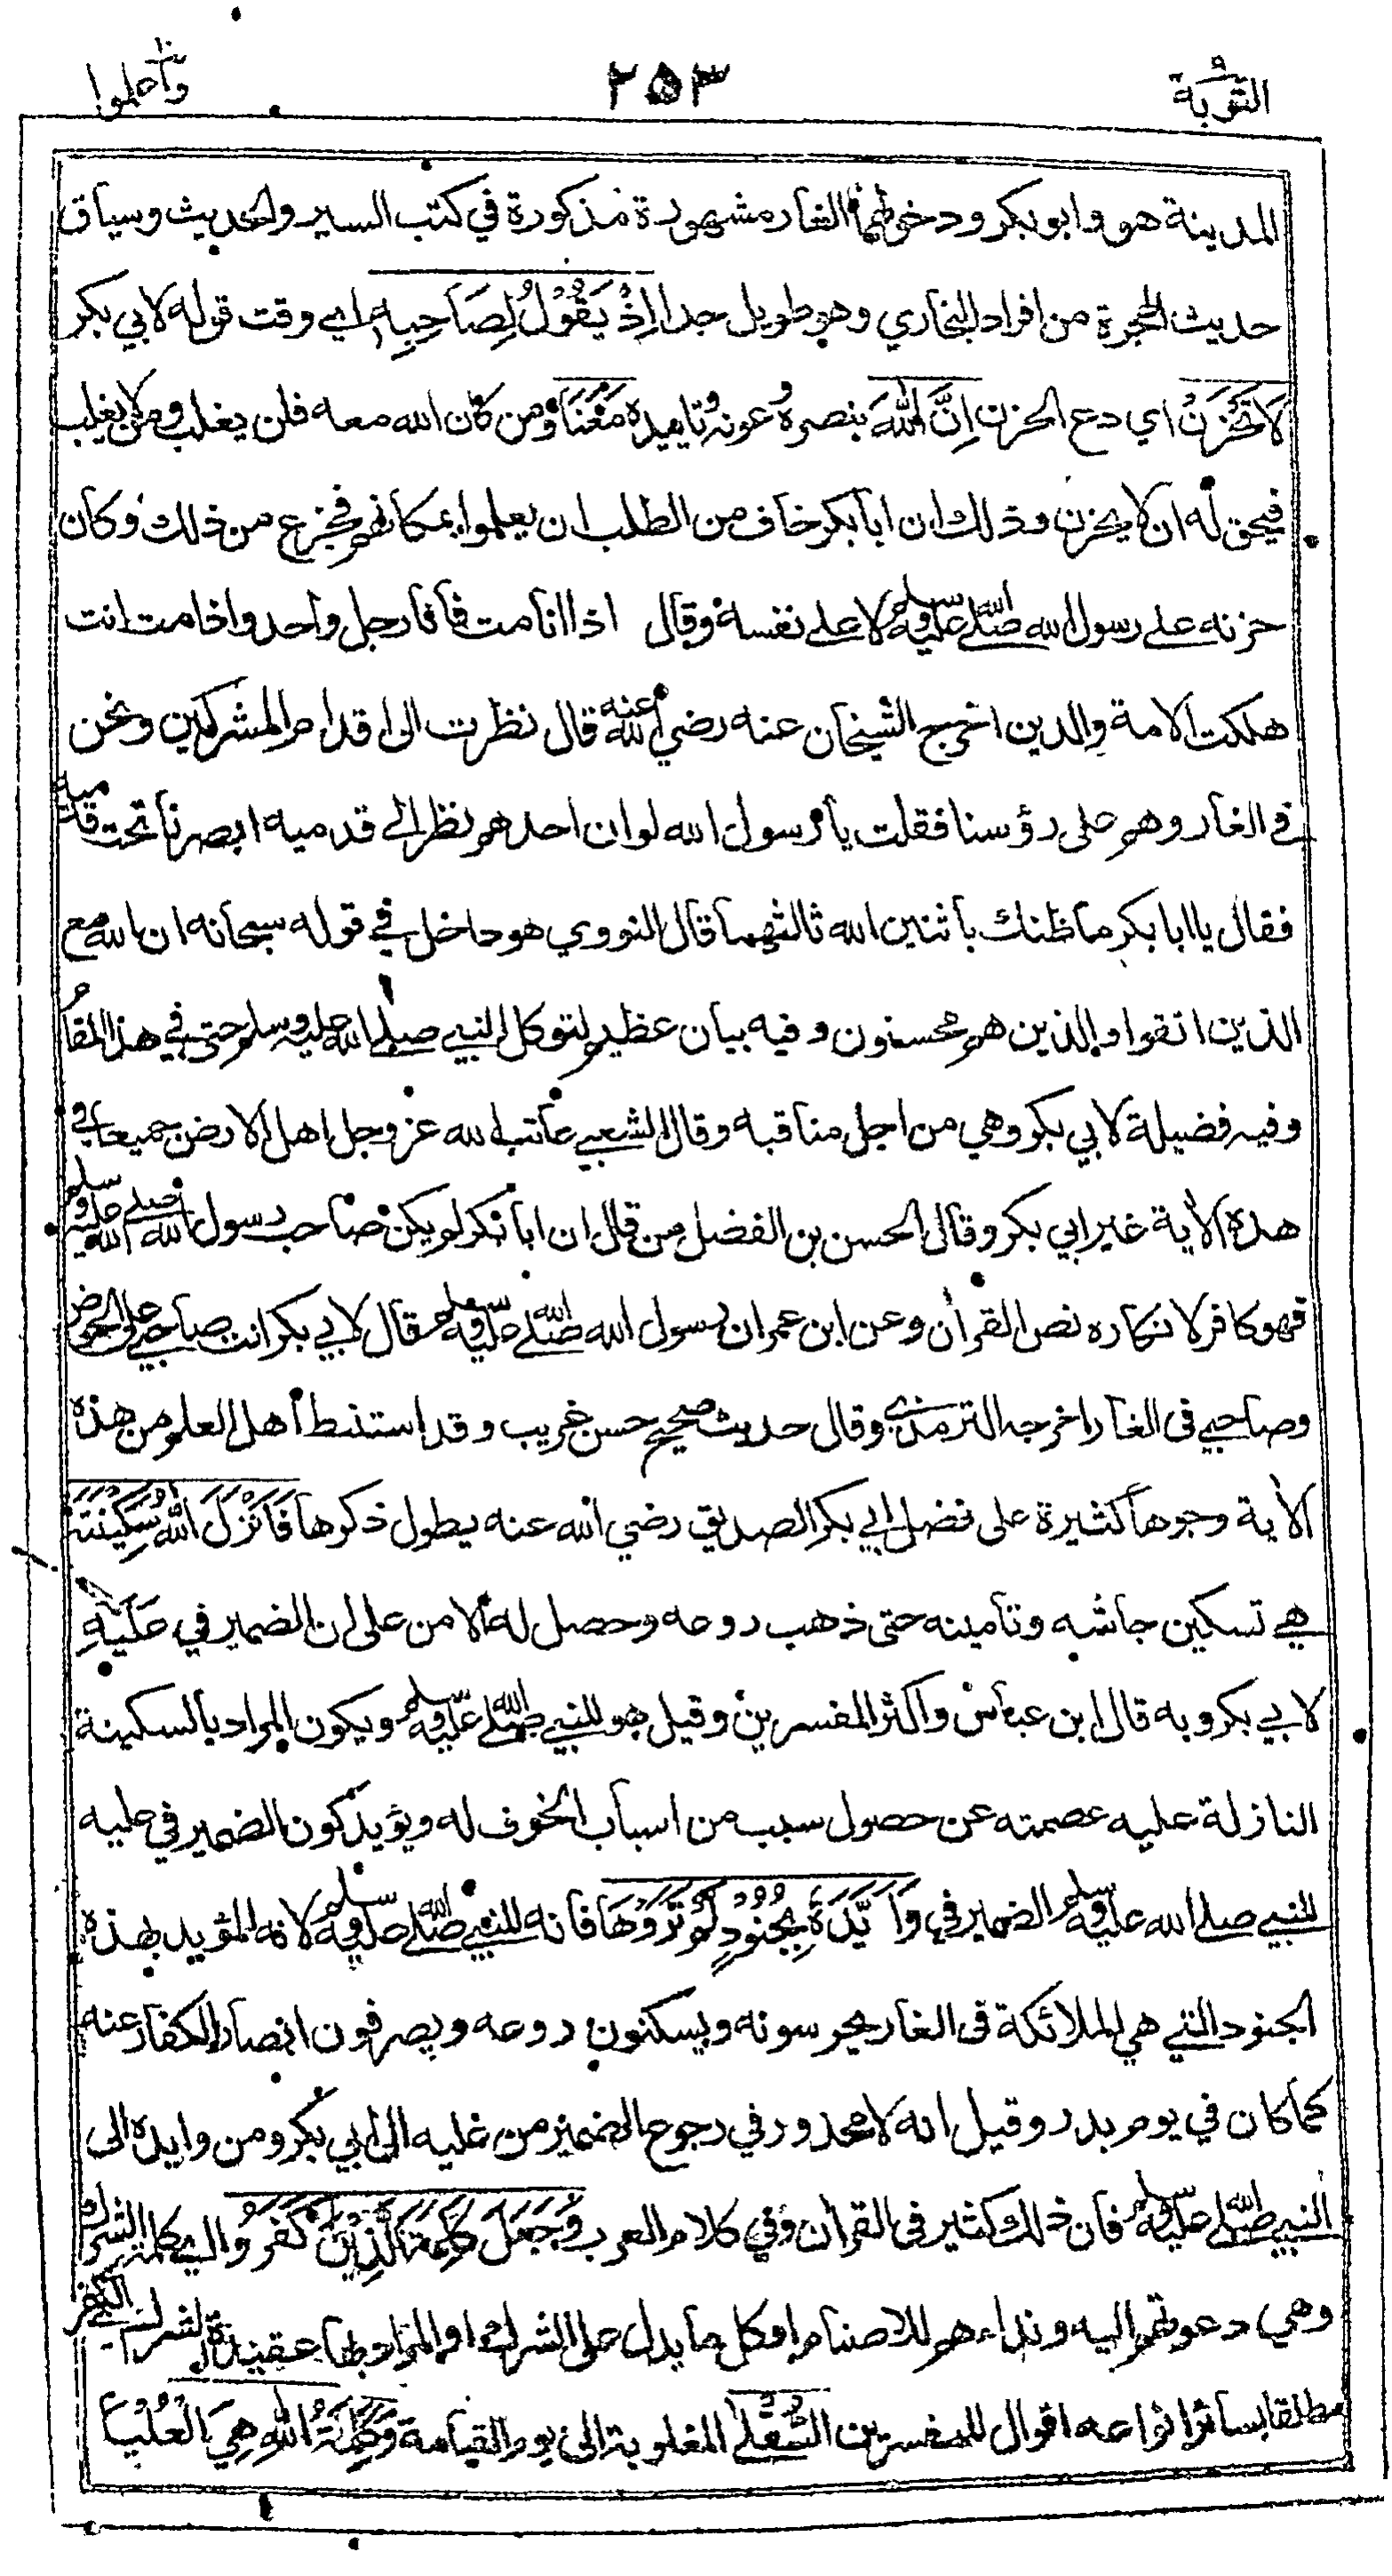 التوبة ٩
٢٥٣
واعلموا ١٠
المدينة هو وابو بكر ودخولهما الغار مشهورة مذكورة في كتب السير والحديث وسياق
حديث الهجرة من افراد البخاري وهو طويل جدا اِذْ يَقُوْلُ لِصَاحِبِهٖ اي وقت قوله لابي بكر
لَا تَحْزَنْ اي دع الحزن اِنَّ اللّٰهَ بنصره وعونه وتاييده مَعَنَا ومن كان الله معه فلن يغلب ومن لا يغلب
فيحق له ان لا يحزن وذلك ان ابا بكر خاف من الطلب ان يعلموا بمكانهم فجزع من ذلك وكان
حزنه على رسول الله صلى الله عليه وسلم لا على نفسه وقال اذا انا مت فانا رجل واحد واذا مت انت
هلكت الامة والدين اخرج الشيخان عنه رضي الله عنه قال نظرت الى اقدام المشركين ونحن
في الغار وهم على رؤسنا فقلت يا رسول الله لو ان احدهم نظر الى قدميه ابصرنا تحت قدميه
فقال يا ابا بكر ما ظنك باثنين الله ثالثهما قال النووي هو داخل في قوله سبحانه ان الله مع
الذين اتقوا والذين هم محسنون وفيه بيان عظيم لتوكل النبي صلى الله عليه وسلم حتى في هذا المقام
وفيه فضيلة لابي بكر وهي من اجل مناقبه وقال الشعبي عاتب الله عز وجل اهل الارض جميعا في
هذه الأية غير ابي بكر وقال الحسن بن الفضل من قال ان ابا بكر لم يكن صاحب رسول الله صلى الله عليه وسلم
فهو كافر لانكاره نص القرأن وعن ابن عمر ان رسول الله صلى الله عليه وسلم قال لابي بكر انت صاحبي على الحوض
وصاحبي في الغار اخرجه الترمذي وقال حديث صحيح حسن غريب وقد استنبط أهل العلم من هذه
الأية وجوها كثيرة على فضل ابي بكر الصديق رضي الله عنه يطول ذكرها فَاَنْزَلَ اللّٰهُ سَكِيْنَتَهٗ
هي تسكين جاشه وتامينه حتى ذهب روعه وحصل له الامن على ان الضمير في عَلَيْهِ
لابي بكر وبه قال ابن عباس واكثر المفسرين وقيل هو للنبي صلى الله عليه وسلم ويكون المراد بالسكينة
النازلة عليه عصمته عن حصول سبب من اسباب الخوف له ويؤيد كون الضمير في عليه
للنبي صلى الله عليه وسلم الضمير في وَاَيَّدَهٗ بِجُنُوْدٍ لَّمْ تَرَوْهَا فانه للنبي صلى الله عليه وسلم لانه المؤيد بهذه
الجنود التي هي الملائكة في الغار يحرسونه ويسكنون روعه ويصرفون ابصار الكفار عنه
كما كان في يوم بدر وقيل انه لا محذور في رجوع الضمير من عليه الى ابي بكر ومن وايده الى
النبي صلى الله عليه وسلم فان ذلك كثير في القرأن وفي كلام العرب وَجَعَلَ كَلِمَةَ الَّذِيْنَ كَفَرُوا اي كلمة الشرك
وهي دعوتهم اليه ونداءهم للاصنام او كل ما يدل على الشرك او المراد بها عقيدة الشرك الكفر
مطلقا بسائر انواعه اقوال للمفسرين السُّفْلٰى المغلوبة الى يوم القيامة وَكَلِمَةُ اللّٰهِ هِيَ الْعُلْيَا